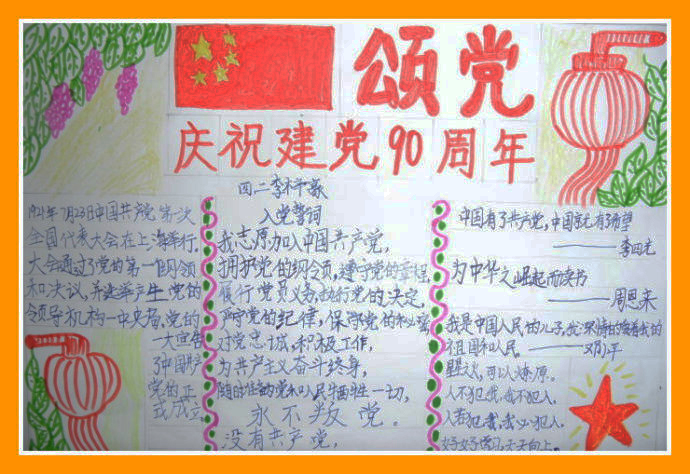 颂党
庆祝建党90周年
四二李梓豪
1921年7月23日中国共产党第一次
全国代表大会在上海举行,
大会通过了党的第一个纲领
和决议,并选举产生党的
领导机构—中央局,党的
一大宣告
了中国共产
党的正
式成立
入党誓词
我志愿加入中国共产党,
拥护党的纲领,遵守党的章程,
履行党员义务,执行党的决定,
严守党的纪律,保守党的秘密,
对党忠诚,积极工作,
为共产主义奋斗终身,
随时准备为党和人民牺牲一切,
永不叛党。
没有共产党,
中国有了共产党,中国就有了希望
——李四光
为中华之崛起而读书
——周恩来
我是中国人民的儿子,我深情的爱着我的
祖国和人民。——邓小平
星星之火,可以燎原。
人不犯我,我不犯人,
人若犯我,我必犯人。
好好学习,天天向上。